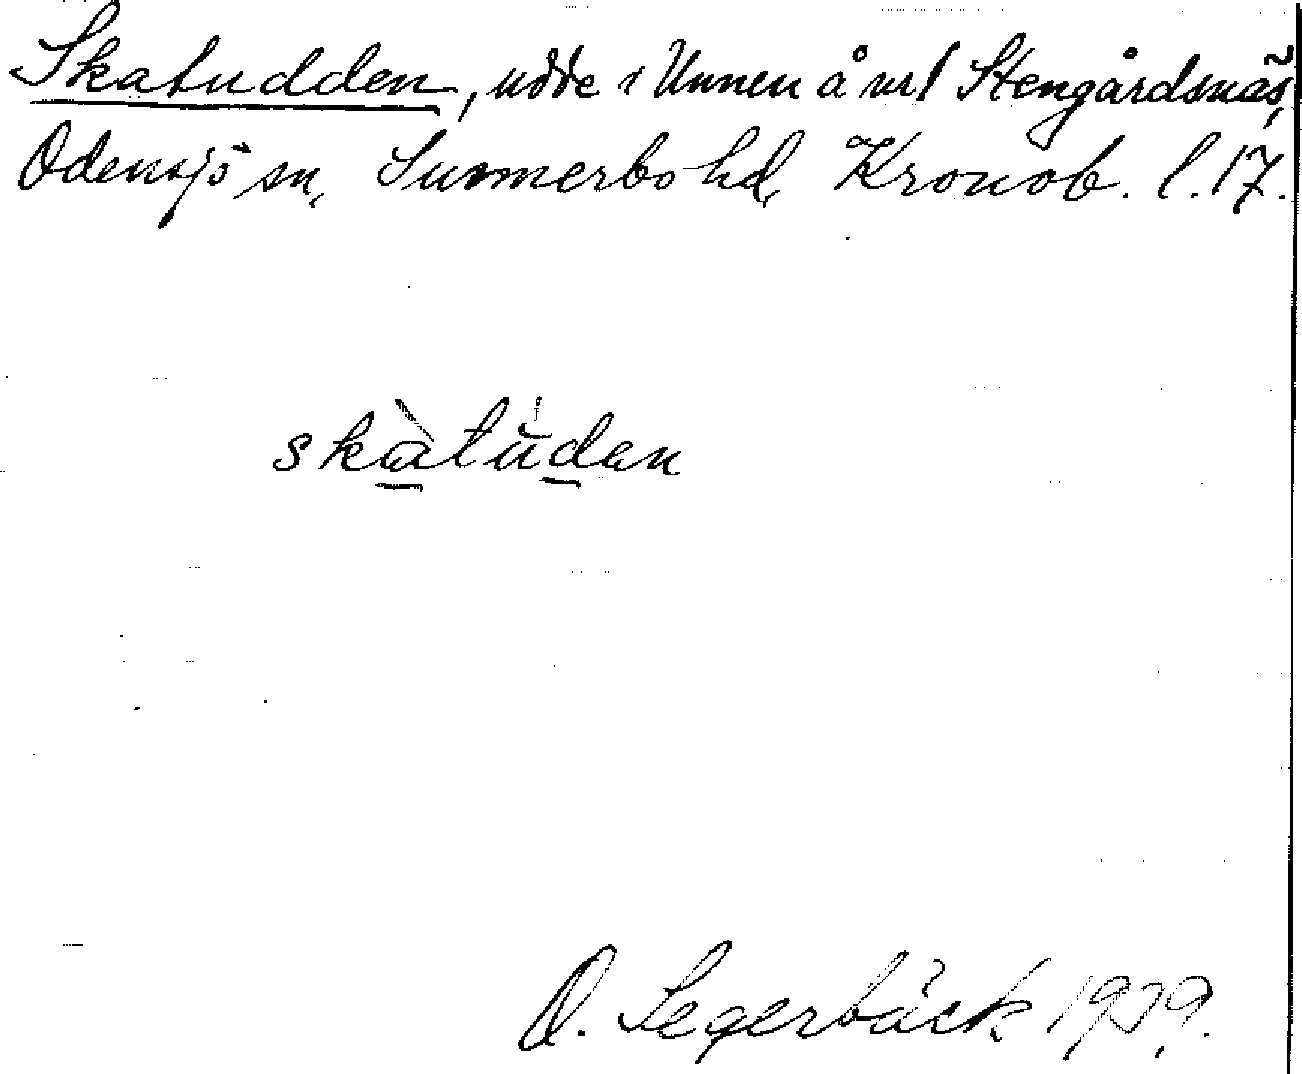 Skatudden, udde i Unnen å url Stengårdsnäs,
Odensjö sn, Sunnerbo hd, Kronob. l. 17.
skàtúden
O. Segerbäck 1939.